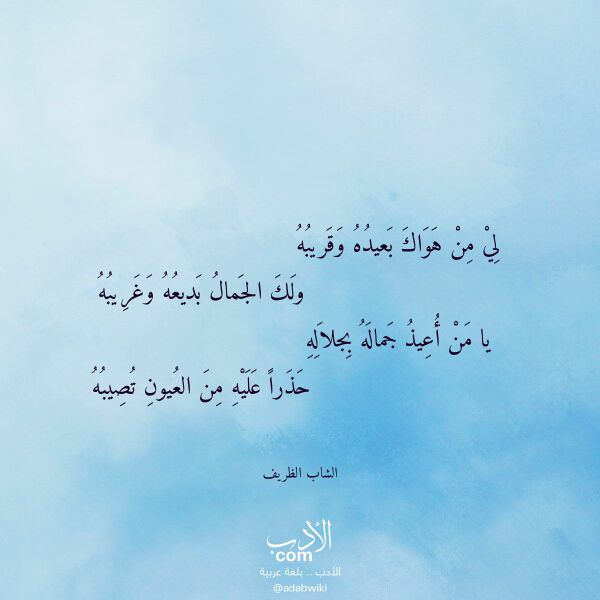 لِيْ مِنْ هَوَاكَ بَعيدُهُ وَقَريبُهُ
ولَكَ الجَمالُ بَديعُهُ وَغَرِيبُهُ
يا مَنْ أُعِيذُ جَمالَهُ بِجلاَلِهِ
حَذَراً عَلَيْهِ مِنَ العُيونِ تُصِيبُهُ
الشاب الظريف
الأدب
com
الأدب .. بلغة عربية
@adabwiki